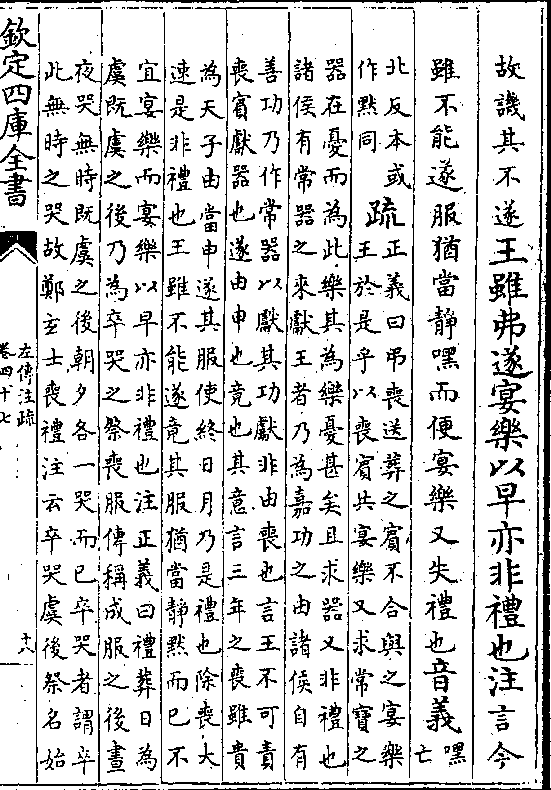 故譏其不遂王雖弗遂宴樂以早亦非禮也注言今
雖不能遂服猶當靜嘿而便宴樂又失禮也音義嘿
亡
北反本或
作黙同
疏
正義曰弔喪送葬之賓不合與之宴樂
王於是乎以喪賓共宴樂又求常寶之
器在憂而為此樂其為樂憂甚矣且求器又非禮也
諸侯有常器之來獻王者乃為嘉功之由諸侯自有
善功乃作常器以獻其功獻非由喪也言王不可責
喪賓獻器也遂由申也竟也其意言三年之喪雖貴
為天子由當申遂其服使終日月乃是禮也除喪大
速是非禮也王雖不能遂竟其服猶當靜黙而已不
宜宴樂而宴樂以早亦非禮也注正義曰禮葬日為
虞既虞之後乃為卒哭之祭喪服傳稱成服之後晝
夜哭無時既虞之後朝夕各一哭而已卒哭者謂卒
此無時之哭故鄭玄士喪禮注云卒哭虞後祭名始
欽定四庫全書
左傳注疏
卷四十七
十八